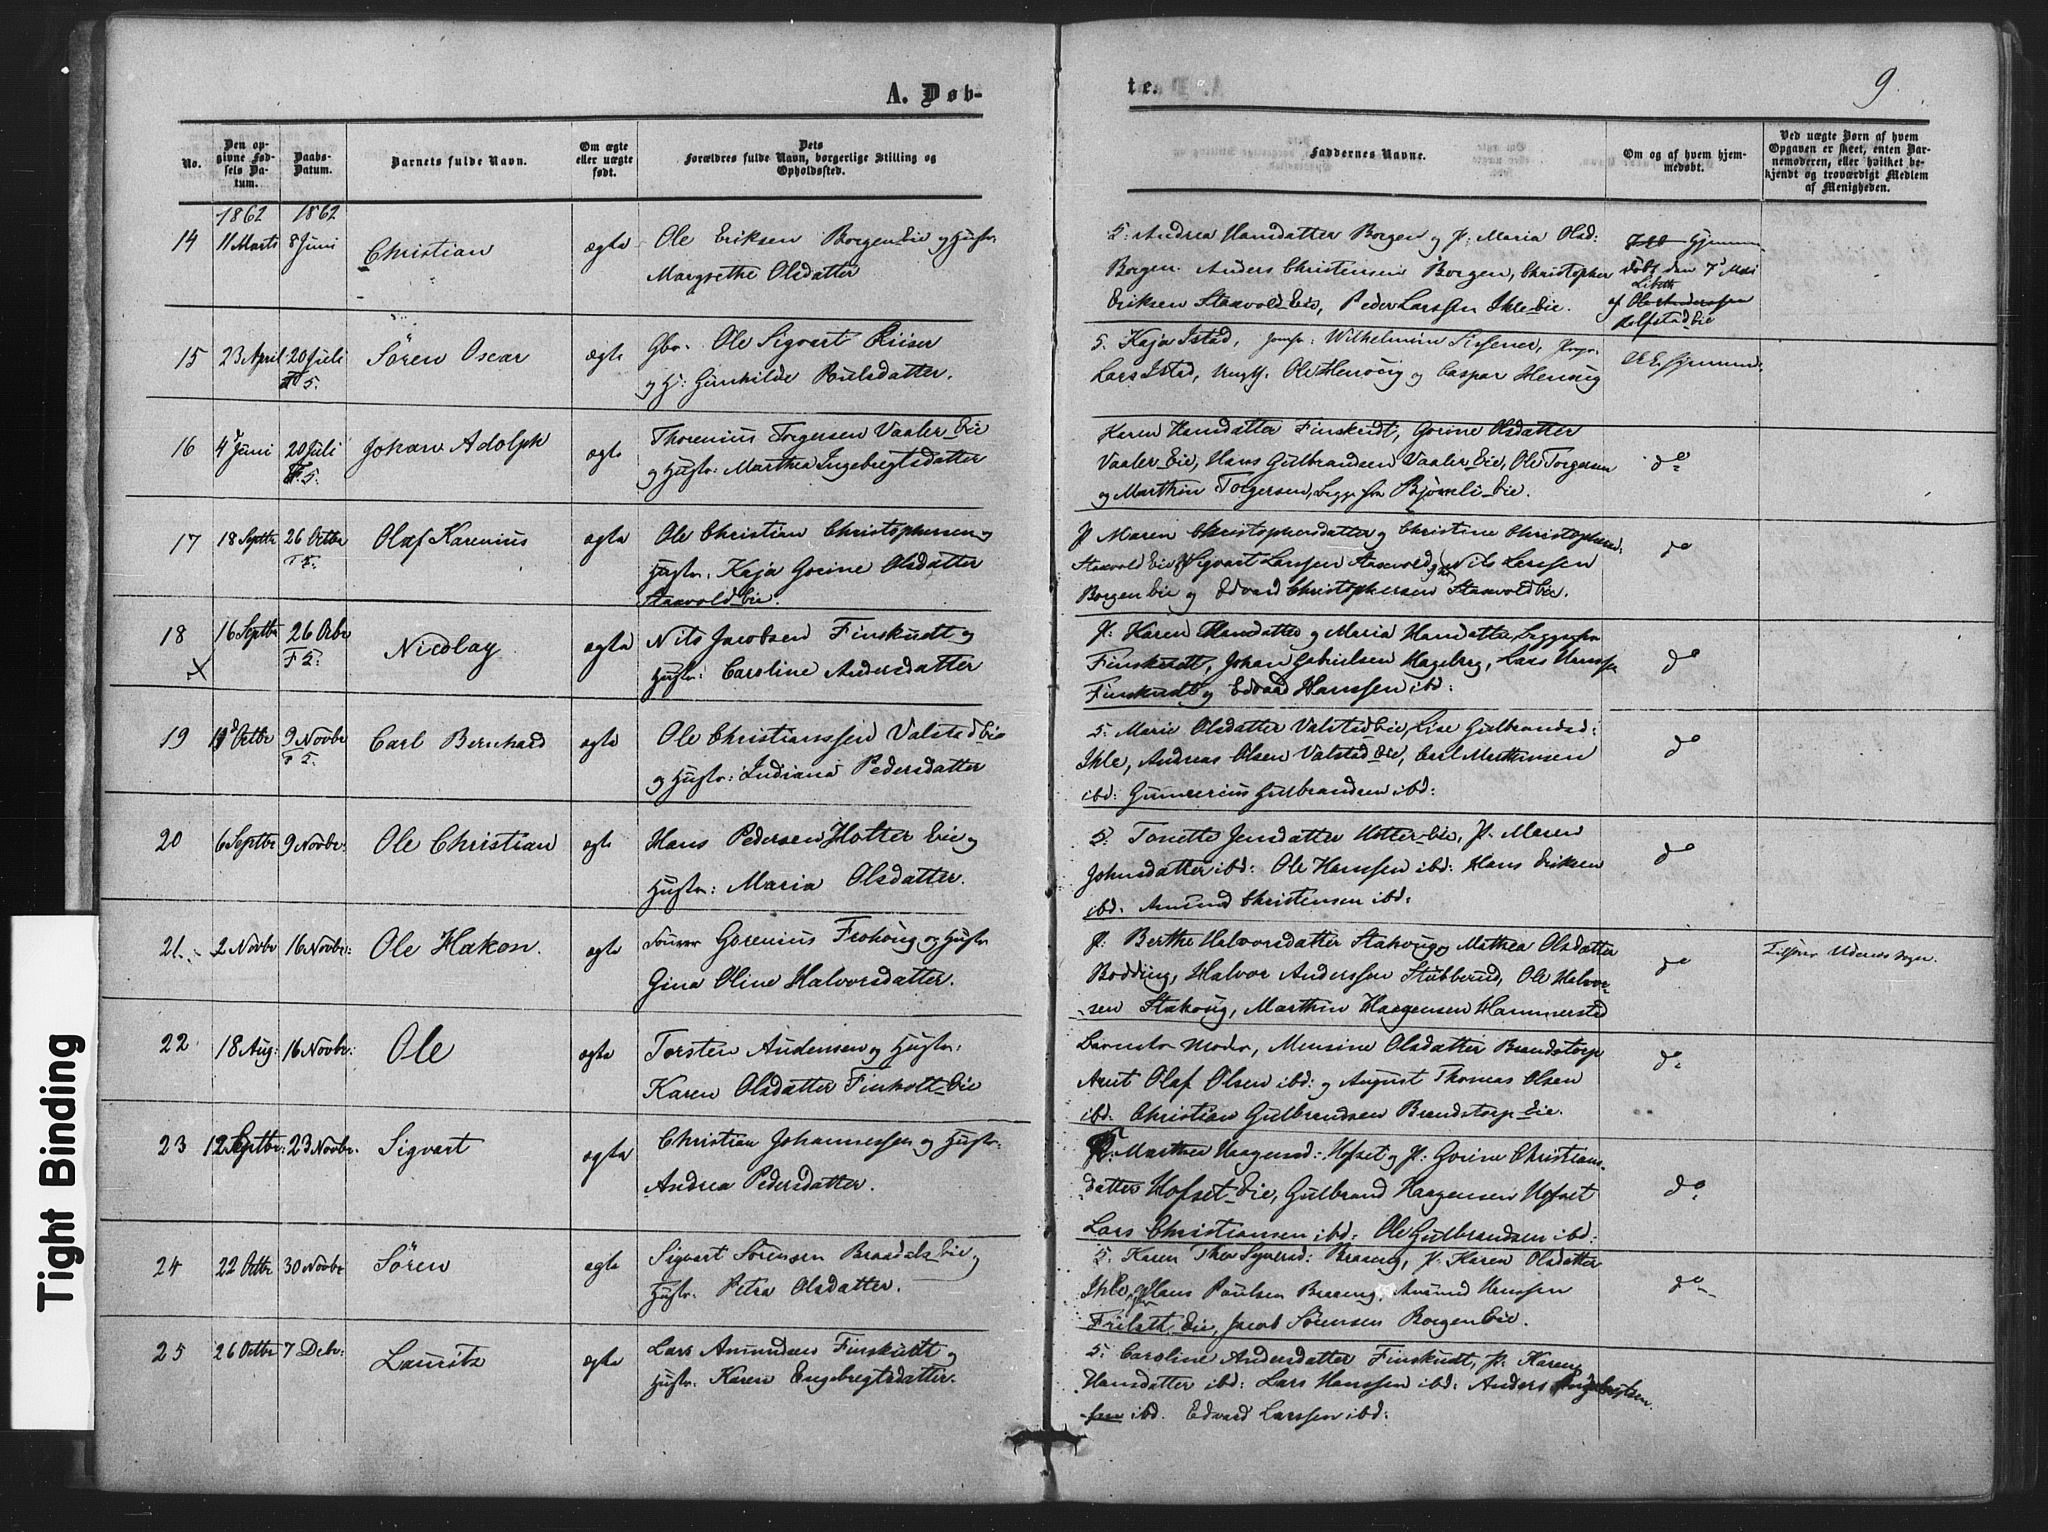 A. Døb-
te.
9.
No.
Den op-
givne Fød-
sels Da-
tum.
Daabs-
Datum.
Barnets fulde Navn.
Om ægte
eller uægte
født.
Dets
Forældres fulde Navn, borgerlige Stilling og
Opholdssted.
Faddernes Navne.
Om og af hvem hjem-
medøbt.
Ved uægte Børn af hvem
Opgaven er skeet, enten Bar-
nemoderen, eller hvilket be-
kjendt og troværdigt Medlem
af Menigheden.
1862 1862
14 11 Marts 8 Juni Christian ægte
Ole Eriksen Borgen Eie og Hustr:
Margrethe Olsdatter
S: Andrea Hansdatter Borgen og P: Maria Olsd:
Borgen. Anders Christensen Borgen, Christopher
Eriksen Staxvold Eie, Peder Larssen Ihle Eie.
Hjemme
døbt den 7 Mai
af
Rolfstad Eie
15 23 April 20 Juli Sören Oscar ægte
T 5.
Gbr. Ole Sigvart Riiser
og H: Gunhilde Poulsdatter.
S. Kaja Istad, Jomfr: Wilhelmine
Lars Istad, Ungk. Ole Hersoug og Caspar Hersoug
16 4 Juni 20 Juli Johan Adolph ægte
T. 5.
Thorenius Torgersen Vaaler Eie
og Hustr: Marthea Ingebregtsdatter
Karen Hansdatter Finskudt, Gorine Olsdatter
Vaaler Eie, Hans Gulbrandsen Vaaler Eie, Ole Torgersen
og Marthin Torgersen, begge fra Bjørnli Eie.
do
17 18 Septbr 26 Octbr Olaf Karenius ægte
T 5.
Ole Christian Christophersen og
Hustr: Kaja Gorine Olsdatter
Staxvold Eie.
P Maren Christophersdatter og Christine Christophersd:
Staxvold Eie, Sigvart Larssen Staxvold, Nils Larssen
Borgen Eie og Edvard Christophersen Staxvold Eie.
do
18 16 Septbr 26 Octbr Nicolay ægte
T 5.
Nils Jacobsen Finskudt og
Hustr: Caroline Andersdatter
P: Karen Hansdatter og Maria Hansdatter, begge fra
Finskudt, Johan Gabrielsen Hageberg, Lars Hanssen
Finskudt og Edvard Hanssen ibd:
do
19 19 Octbr 9 Novbr Carl Bernhard ægte
T 5.
Ole Christianssen Valstad Eie
og Hustr: Indiana Pedersdatter
S. Marie Olsdatter Valstad Eie, Lise Gulbrandsd:
Ihle, Andreas Olsen Valstad Eie, Carl Mathiasen
ibd: Gunnerius Gulbrandsen ibd:
do
20 6 Septbr 9 Novbr. Ole Christian ægte
Hans Pedersen Holter Eie og
Hustr: Maria Olsdatter.
S. Tonette Jensdatter Holter Eie, P. Maren
Johnsdatter ibd: Ole Hanssen ibd: Hans Eriksen
ibd. Amund Christensen ibd:
do
21. 2 Novbr 16 Novbr: Ole Hakon. ægte
Gorenius Frohoug og Hustr
Gina Oline Halvorsdatter.
P: Berthe Halvorsdatter Stakoug og Mathea Olsdatter
Bodding, Halvor Anderssen Stubberud, Ole Halvor-
sen Stakoug, Marthin Haagensen Hammerstad
do
22 18 Aug: 16 Novbr: Ole ægte
Torsten Audensen og Hustr:
Karen Olsdatter Finholt Eie
Barnets Moder, Mensine Olsdatter Brandstorp
Arnt Olaf Olsen ibd: og August Thomas Olsen
ibd. Christian Gulbrandsen Brandstorp Eie.
do
23 12 Septbr: 23 Novbr. Sigvart ægte
Christian Johannessen og Hustr:
Andrea Pedersdatter.
Marthea Haagensd: Hofset og P: Gorine Christians-
datter Hofset Eie, Gulbrand Haagensen Hofset
Lars Christiansen ibd: Ole Gulbrandsen ibd:
do
24 22 Octbr 30 Novbr Sören ægte
Sigvart Sörensen Braadals Eie og
Hustr. Petra Olsdatter.
S. Karen Thea Syversd: Braaeng, P. Karen Olsdatter
Ihle, Hans Paulsen Braaeng, Amund Hanssen
Frilseth Eie, Jacob Sørensen Borgen Eie.
do
25 26 Octbr 7 Debr: Lauritz ægte
Lars Amundsen Finskudt og
Hustr. Karen Engebregtsdatter.
S. Caroline Andersdatter Finskudt, P. Karen
Hansdatter ibd: Lars Hanssen ibd: Anders Engebrigtsen
ibd. Edvard Larssen ibd:
Tight Binding